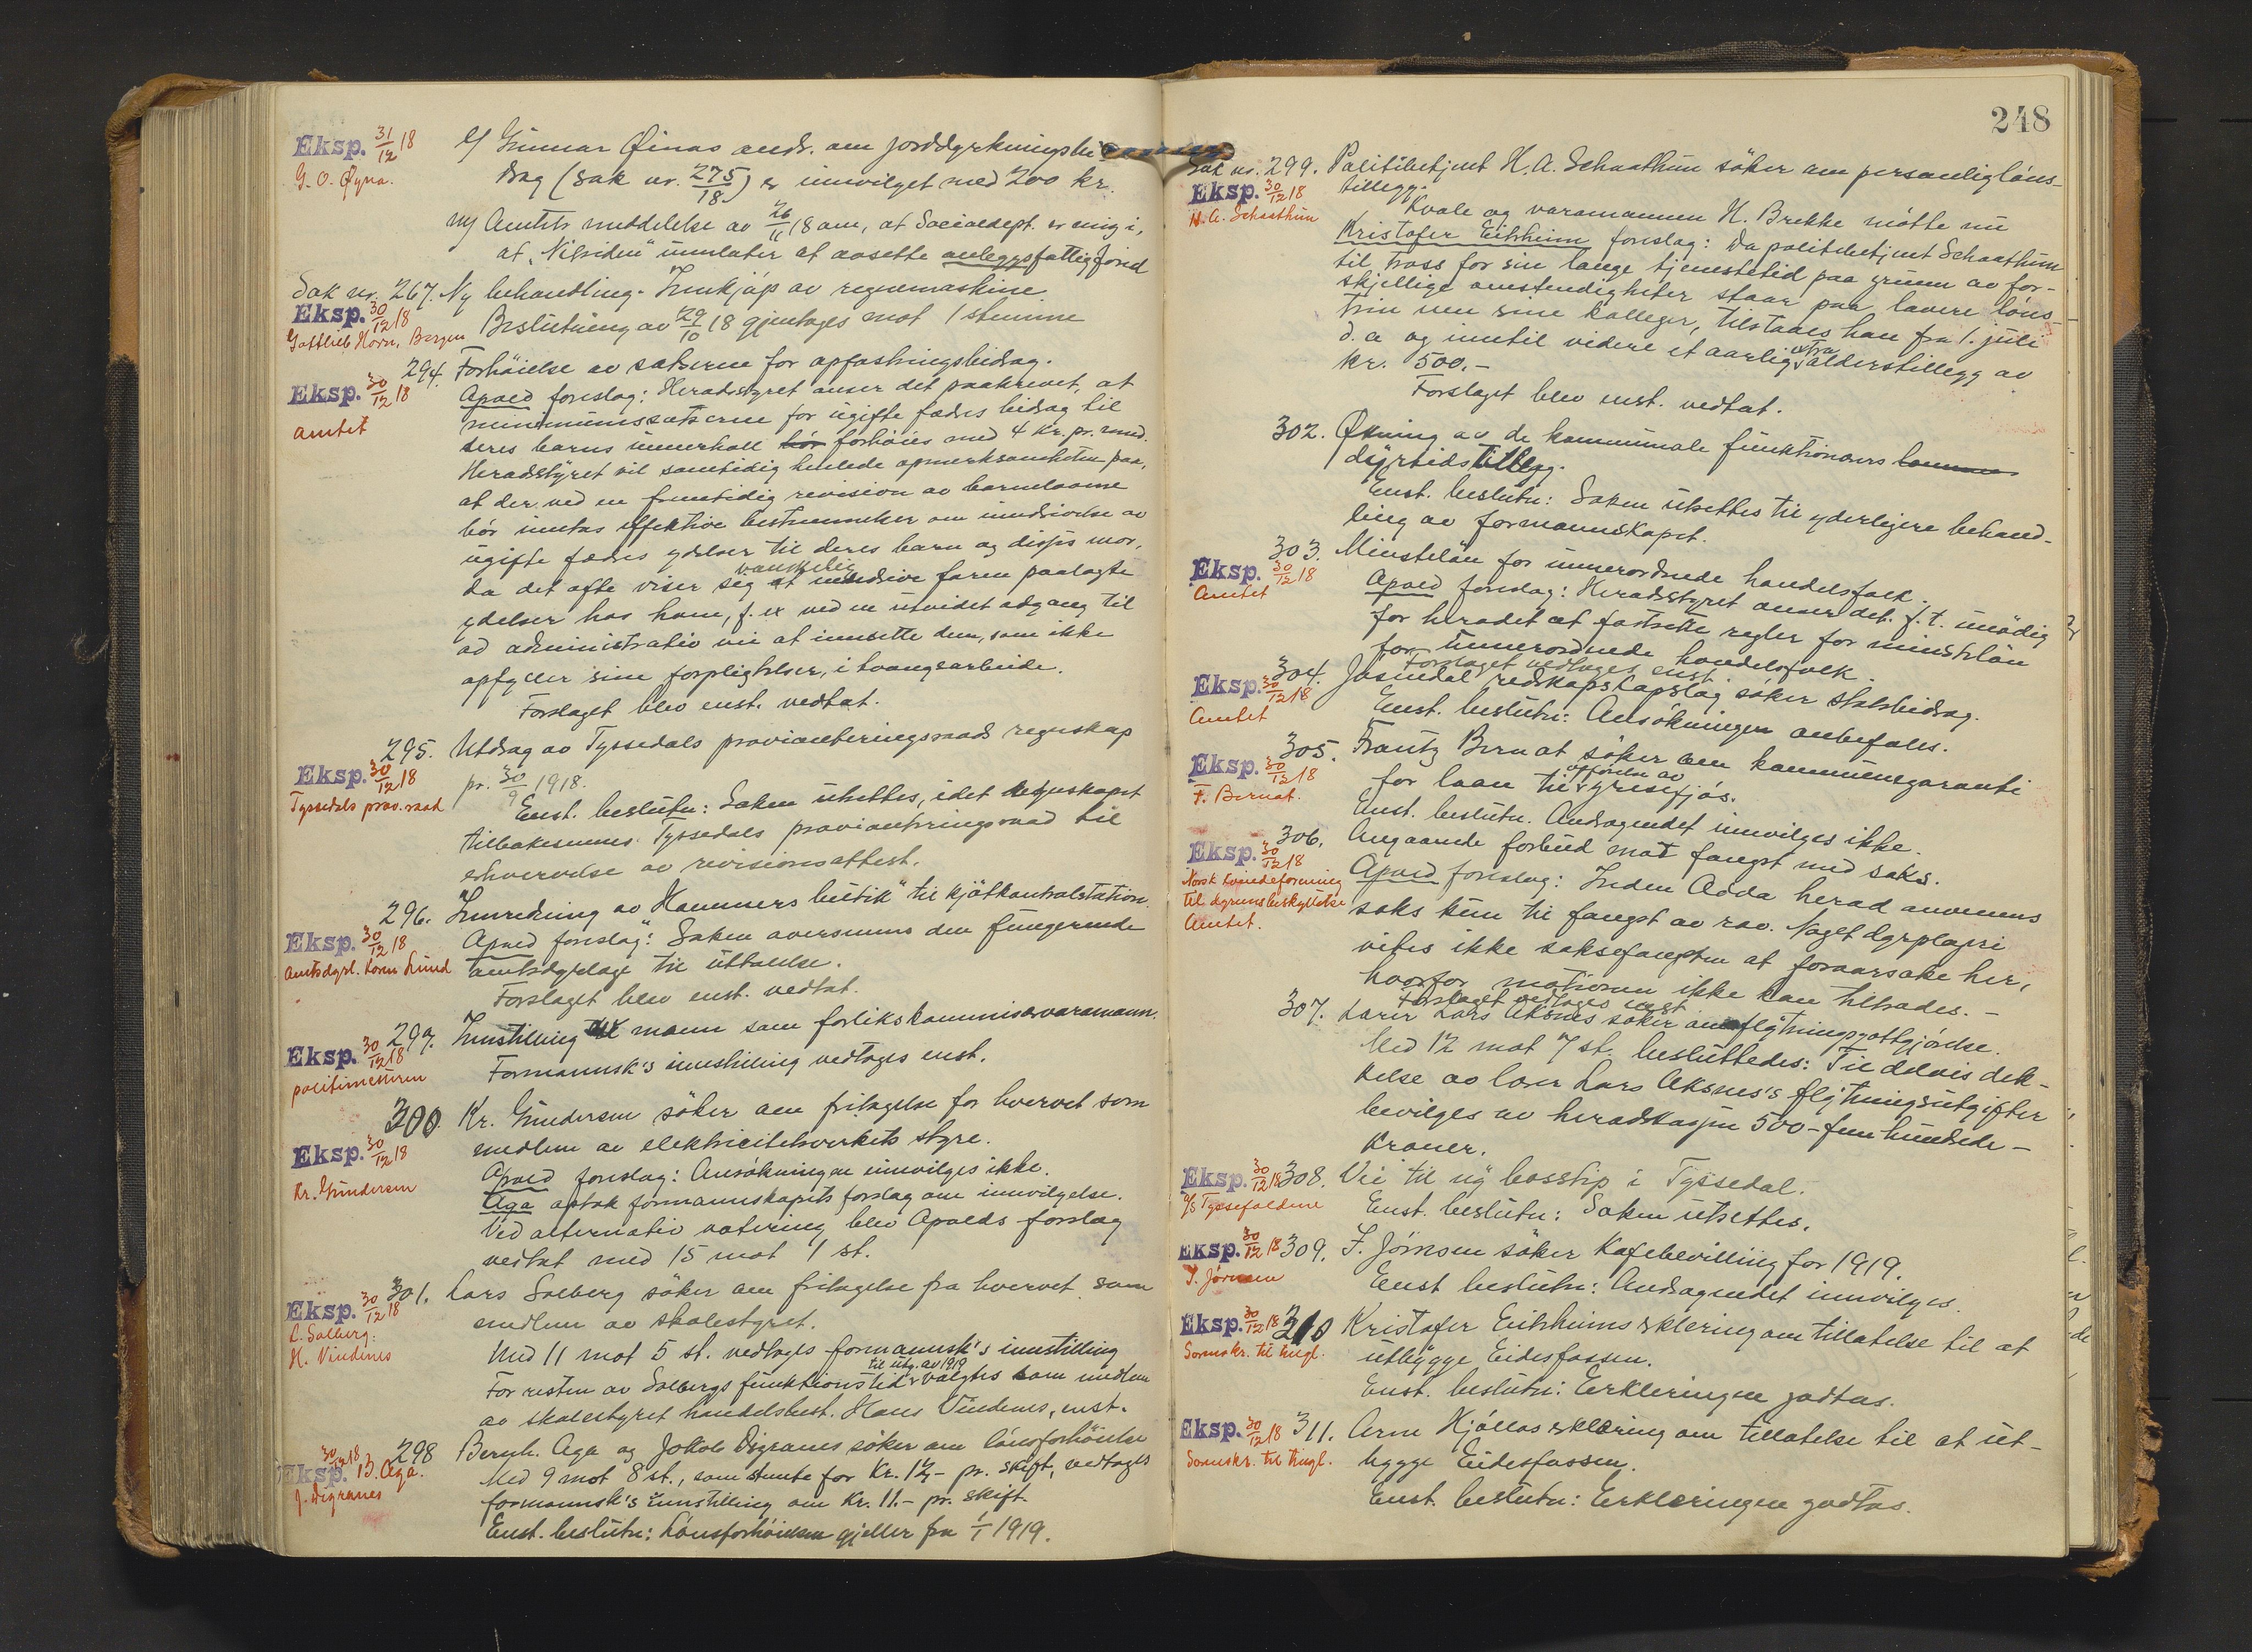 Eksp. 31/12 18
G. O. Øyna.
l/ Gunnar Øinas ands. om jorddyrkningsbi-
drag (sak nr. 275/18) er innvilget med 200 kr.
m/ Amtets meddelelse av 26/11 18 om, at Socialdept. er enig i,
at "Nitriden" unnlater at avsette anleggsfattigfond
Sak nr. 267. Ny behandling. Innkjøp av regnemaskine.
Eksp. 30/12 18
Gottlieb Horn, Bergen
Beslutning av 29/10 18 gjentages mot 1 stemme
294. Forhøielse av satserne for opfostringsbidrag.
Eksp. 30/12 18
Amtet
Apold forslag: Heradsstyret anser det paakrevet, at
minimumssatserne for ugifte fædres bidrag til
deres barns unnerhold bør forhøies med 4 kr. pr. mnd.
Heradsstyret vil samtidig henlede opmerksomheten paa,
at der ved en fremtidig revision av barnelovene
bør inntas effektive bestemmelser om inndrivelse av
ugifte fædres ydelser til deres barn og disses mor,
da det ofte viser sig vanskelig at inndrive faren paalagte
ydelser hos ham, f. ex ved en utvidet adgang til
ad administrativ vei at innsette dem, som ikke
opfyller sine forpligtelser, i tvangsarbeide.
Forslaget blev enst. vedtat.
295. Utdrag av Tyssedals provianteringsraads regnskap
Eksp. 30/12 18
Tyssedals prov.raad
pr. 30/9 1918.
Enst. beslutn: Saken utsettes, idet regnskapet
tilbakesennes Tyssedals provianteringsraad til
erhvervelse av revisionsattest.
296. Innredning av "Hammers butik" til kjøtkontrolstation.
Eksp. 30/12 18
Amtsdyrl. Horn Lund
Apold forslag: Saken oversennes den fungerende
amtsdyrlæge til uttalelse.
Forslaget blev enst. vedtat.
297. Innstilling til mann som forlikskommissærvaramann.
Eksp. 30/12 18
politimesteren
Formannsk's innstilling vedtages enst.
300. Kr. Gundersen søker om fritagelse for hvervet som
Eksp. 30/12 18
Kr. Gundersen
medlem av elektricitetsverkets styre.
Apold forslag: Ansøkningen innvilges ikke.
Aga optok formannskapets forslag om innvilgelse.
Ved alternativ votering blev Apolds forslag
vedtat med 15 mot 1 st.
301. Lars Solberg søker om fritagelse fra hvervet som
Eksp. 30/12 18
L. Solberg:
H. Vindenes
medlem av skolestyret.
Med 11 mot 5 st. vedtages formannsk's innstilling
For resten av Solbergs funktionstid til utg. av 1919 valgtes som medlem
av skolestyret handelsbest. Hans Vindenes, enst.
298 Bernh. Aga og Jakob Digranes søker om lønsforhøielse
30/12 18
Eksp. B. Aga.
J. Digranes
Med 9 mot 8 st., som stemte for Kr. 12,- pr. skift, vedtages
formannsk's innstilling om Kr. 11.- pr. skift.
Enst. beslutn: Lønsforhøielsen gjeller fra 1/1 1919.
248
Sak nr. 299. Politibetjent H. A. Schaathun søker om personlig løns-
Eksp. 30/12 18
H. A. Schaathun
tillegg.
Kvale og varamannen H. Brekke møtte nu
Kristofer Eitrheim forslag: Da politibetjent Schaathun
til tross for sin lange tjenestetid paa grunn av for-
skjellige omstendigheter staar paa lavere løns-
trin enn sine kolleger, tilstaaes han fra 1. juli
d. a. og inntil videre et aarlig extra alderstillegg av
kr. 500.-
Forslaget blev enst. vedtat.
302. Økning av de kommunale funktionærers
dyrtidstillegg.
Enst. beslutn: Saken utsettes til yderligere behand-
ling av formannskapet.
303. Minsteløn for unnerordnede handelsfolk.
Eksp. 30/12 18
Amtet
Apold forslag: Heradsstyret anser det f. t. unødig
for heradet at fastsette regler for minsteløn
for unnerordnede handelsfolk.
Forslaget vedtages enst.
304. Jøsendal redskapslag søker statsbidrag.
Eksp. 30/12 18
Amtet
Enst. beslutn: Ansøkningen anbefales.
305. Frantz Bernat søker om kommunegaranti
Eksp. 30/12 18
F. Bernat.
for laan til opførelse av grisefjøs.
Enst. beslutn. Andragendet innvilges ikke.
306. Angaaende forbud mot fangst med saks.
Eksp. 30/12 18
Norsk kvindeforening
til dyrenes beskyttelse
Amtet.
Apold forslag: Inden Odda herad anvennes
saks kun til fangst av rev. Noget dyrplageri
vites ikke saksefangsten at foraarsake her,
hvorfor motionen ikke kan tiltrædes. -
Forslaget vedtages enst
307. Lærer Lars Aksnes søker om flytningsgottgjørelse.
Med 12 mot 7 st. besluttedes: Til delvis dek-
kelse av lærer Lars Aksnes's flytningsutgifter
bevilges av heradskassen 500 - fem hundrede -
kroner.
308. Vei til ny bosstip i Tyssedal.
Eksp. 30/12 18
A/S Tyssefaldene
Enst. beslutn: Saken utsettes.
309. J. Jørnsen søker kafebevilling for 1919.
Eksp. 30/12 18
J. Jørnsen
Enst beslutn: Andragendet innvilges.
310 Kristofer Eitrheims erklering om tillatelse til at
Eksp. 30/12 18
Sorenskr. til tingl.
utbygge Eidesfossen.
Enst. beslutn: Erkleringen godtas.
311. Arne Hjøllos erklering om tillatelse til at ut-
Eksp. 30/12 18
Sorenskr. til tingl.
bygge Eidesfossen.
Enst. beslutn: Erkleringen godtas.